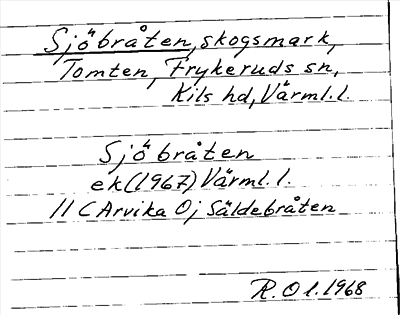 Sjöbråten, skogsmark,
Tomten, Frykeruds sn,
Kils hd, Värml. l.
Sjöbråten
ek (1967) Värml. l.
11 C Arvika 0j Säldebråten
R. O l. 1968